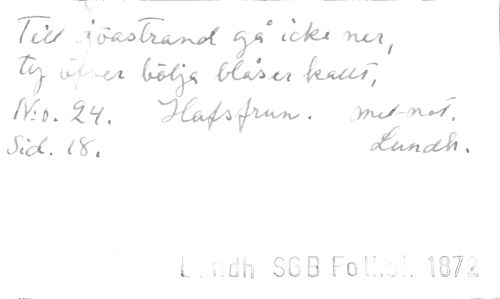 Till sjöastrand gå icke ner,
ty öfver bölja blåser kallt,
N:o. 24. Hafsfrun. med not.
Sid. 18. Lundh.
Lundh SGB Folkek 1872